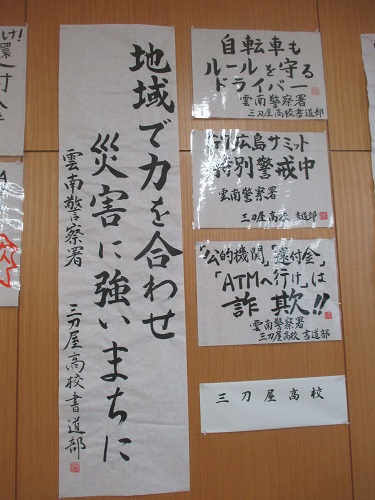 地域で力を合わせ
災害に強いまちに
雲南警察署 三刀屋高校書道部
自転車も
ルールを守る
ドライバー
雲南警察署
三刀屋高校書道部
広島サミット
特別警戒中
雲南警察署
三刀屋高校 書道部
「公的機関」「還付金」
「ATMへ行け」は
詐欺!!
雲南警察署
三刀屋高校 書道部
三刀屋高校